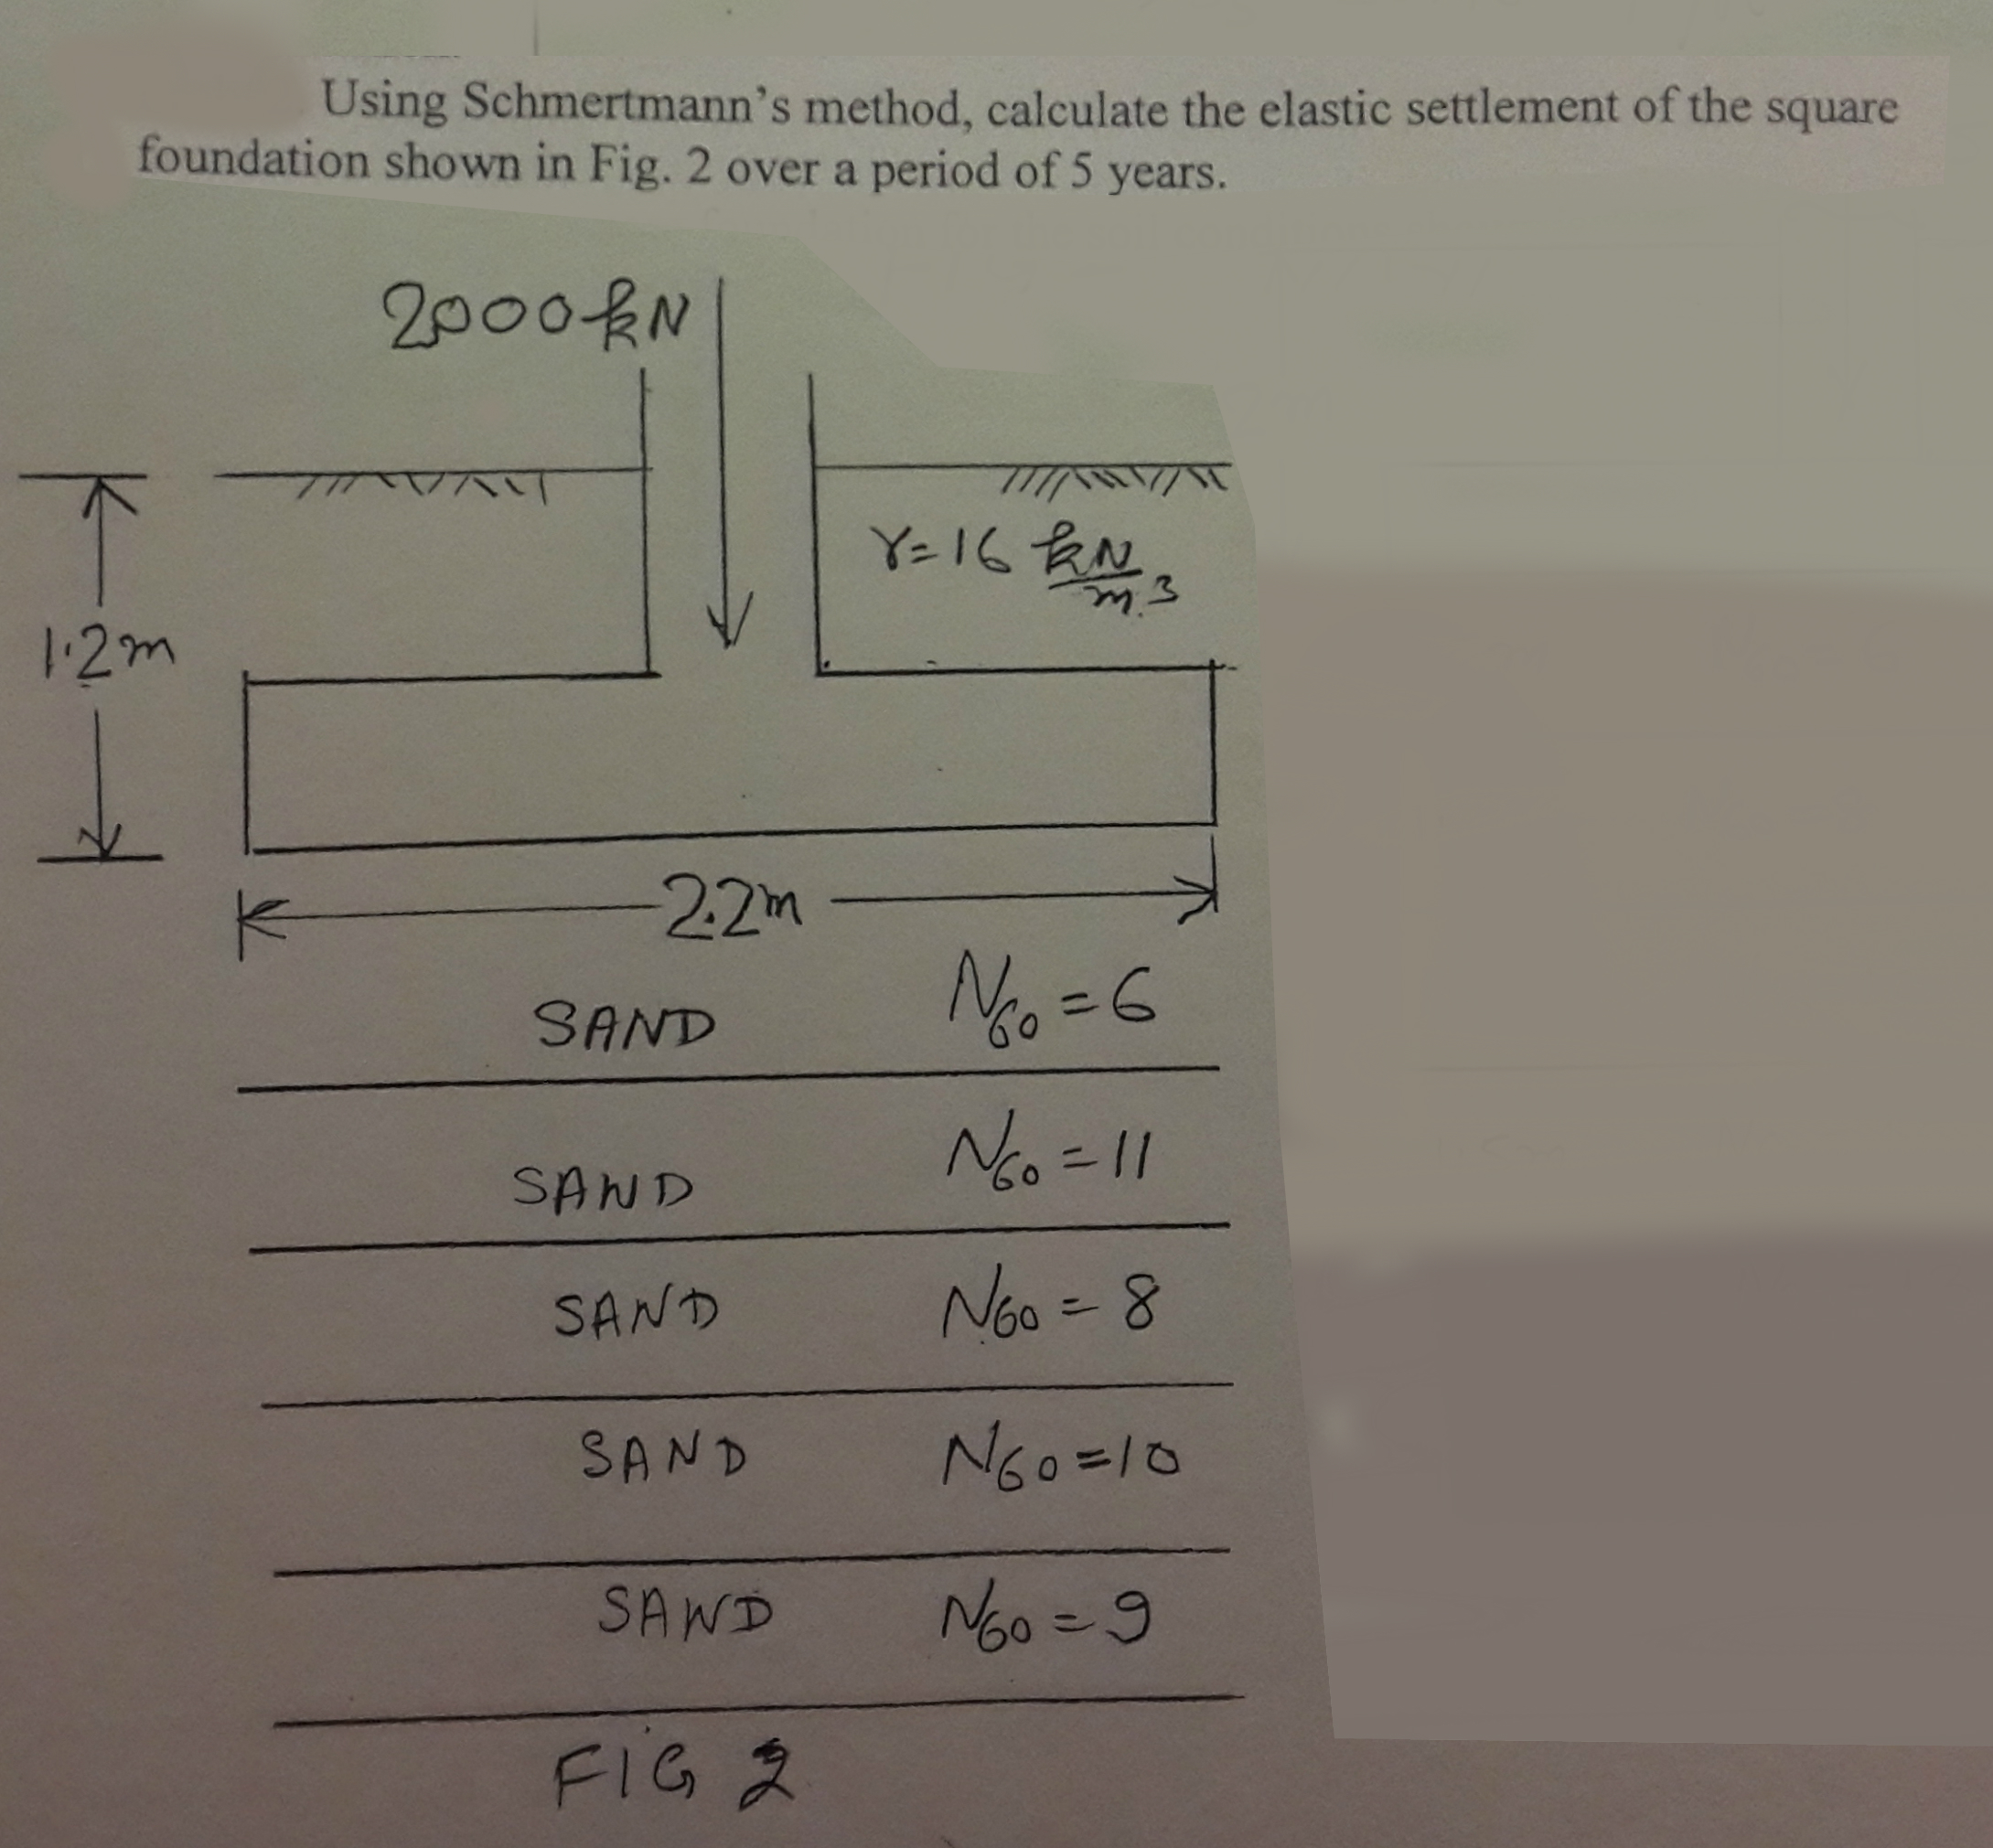 Using Schmertmann's method, calculate the elastic settlement of the square
foundation shown in Fig. 2 over a period of 5 years.
2000 kN
γ=16 kN/m³
1.2m
2.2m
SAND N60 = 6
SAND N60 = 11
SAND N60 = 8
SAND N60 = 10
SAND N60 = 9
FIG 2